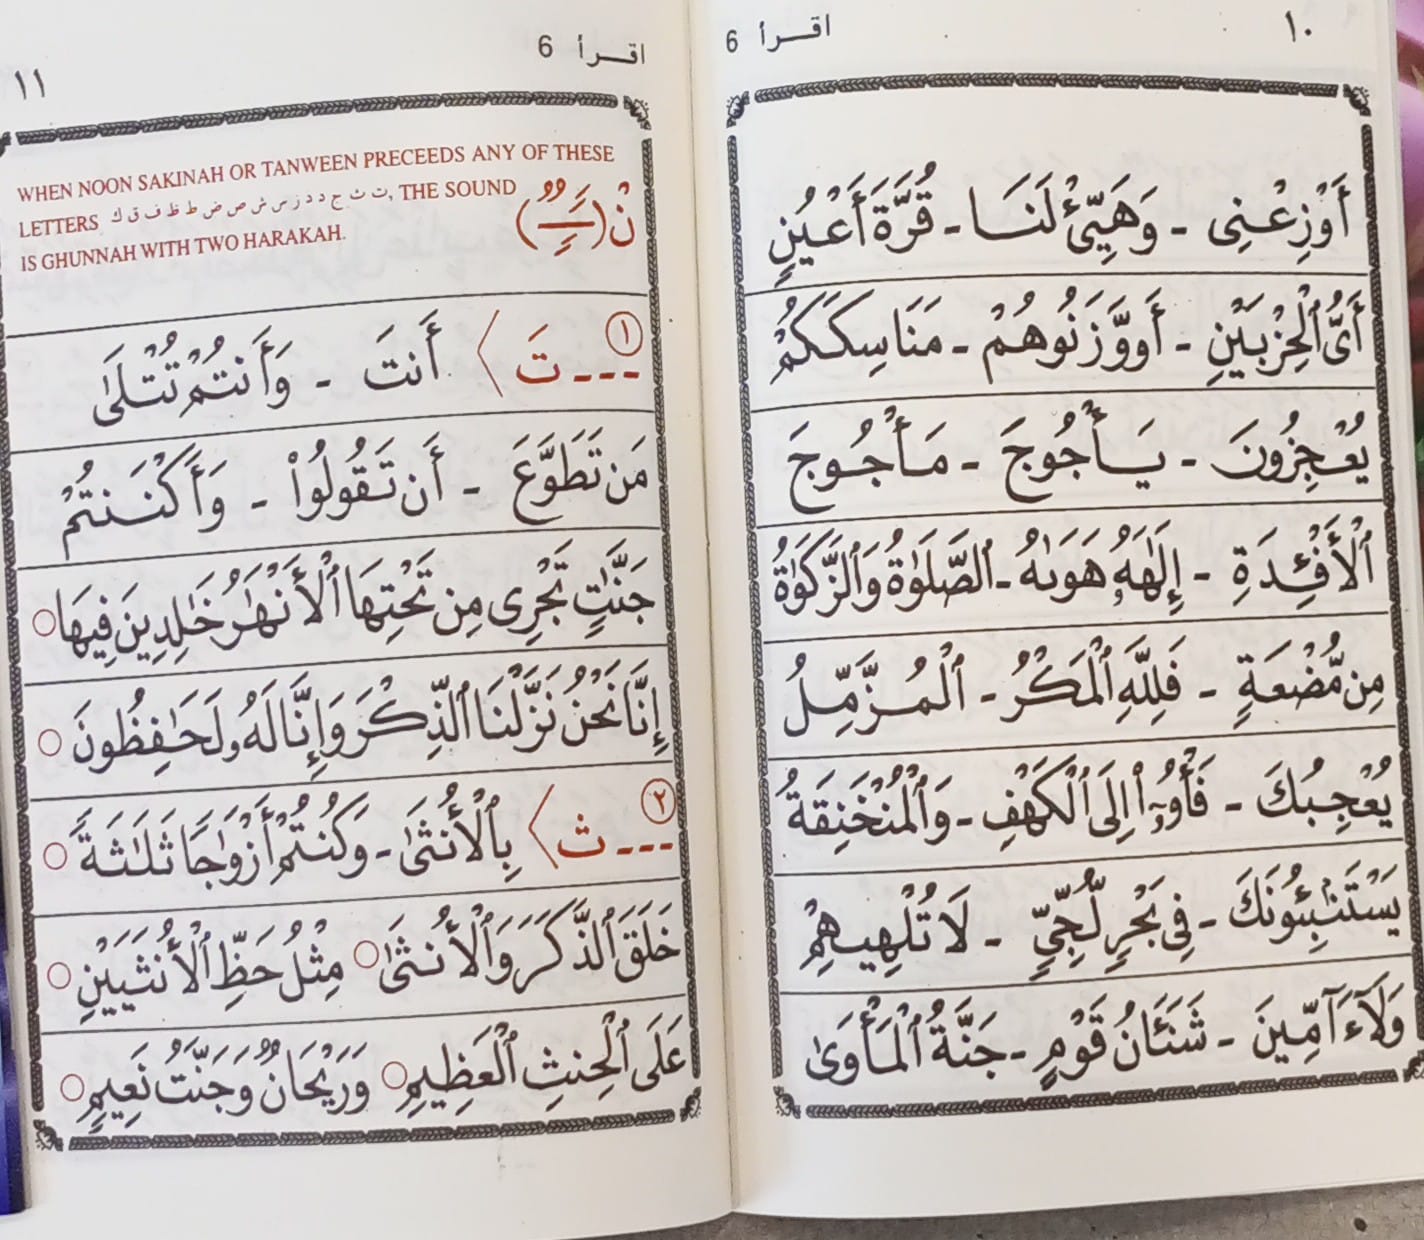 ١٠
اقـــرأ 6
أَوْزِعْنِى - وَهَيِّئْ لَنَـــا - قُرَّةَ أَعْيُنٍ
أَىُّ ٱلْحِزْبَيْنِ - أَو وَّزَنُوهُمْ - مَنَاسِكَكُمْ
يُعْـجِزُونَ - يَـــأْجُوجَ - مَـأْجُـوجَ
ٱلْأَفْـِٔدَةِ - إِلَٰهَهُۥ هَوَىٰهُ - ٱلصَّلَوٰةُ وَٱلزَّكَوٰةُ
مِن مُّضْغَةٍ - فَلِلَّهِ ٱلْمَكْرُ - ٱلْمُـزَّمِّـلُ
يُعْجِـبُكَ - فَأْوُۥٓا۟ إِلَى ٱلْكَهْفِ - وَٱلْمُنْخَنِقَةُ
يَسْتَنۢبِـُٔونَكَ - فِى بَحْرٍ لُّجِّىٍّ - لَا تُلْهِيـهِمْ
وَلَآ ءَآمِّينَ - شَنَـَٔانُ قَوْمٍ - جَنَّةُ ٱلْمَأْوَىٰ
اقـــرأ 6
١١
WHEN NOON SAKINAH OR TANWEEN PRECEEDS ANY OF THESE
LETTERS ت ث ج د ذ ز س ش ص ض ط ظ ف ق ك, THE SOUND
IS GHUNNAH WITH TWO HARAKAH.
نْ (ـًـٍـٌ)
١ ---تَ〉 أَنتَ - وَأَنتُمْ تُتْلَىٰ
مَن تَطَوَّعَ - أَن تَـقُولُوا۟ - وَأَكْنَـنتُمْ
جَنَّٰتٍ تَجْرِى مِن تَحْتِهَا ٱلْأَنْهَٰرُ خَٰلِدِينَ فِيهَا ○
إِنَّا نَحْنُ نَزَّلْنَا ٱلذِّكْرَ وَإِنَّا لَهُۥ لَحَٰفِظُونَ ○
٢ ---ث〉 بِٱلْأُنثَىٰ - وَكُنتُمْ أَزْوَٰجًا ثَلَٰثَةً ○
خَلَقَ ٱلذَّكَرَ وَٱلْأُنثَىٰ ○ مِثْلُ حَظِّ ٱلْأُنثَيَيْنِ ○
عَلَى ٱلْحِنثِ ٱلْعَظِيمِ ○ وَرَيْحَانٌ وَجَنَّتُ نَعِيمٍ ○